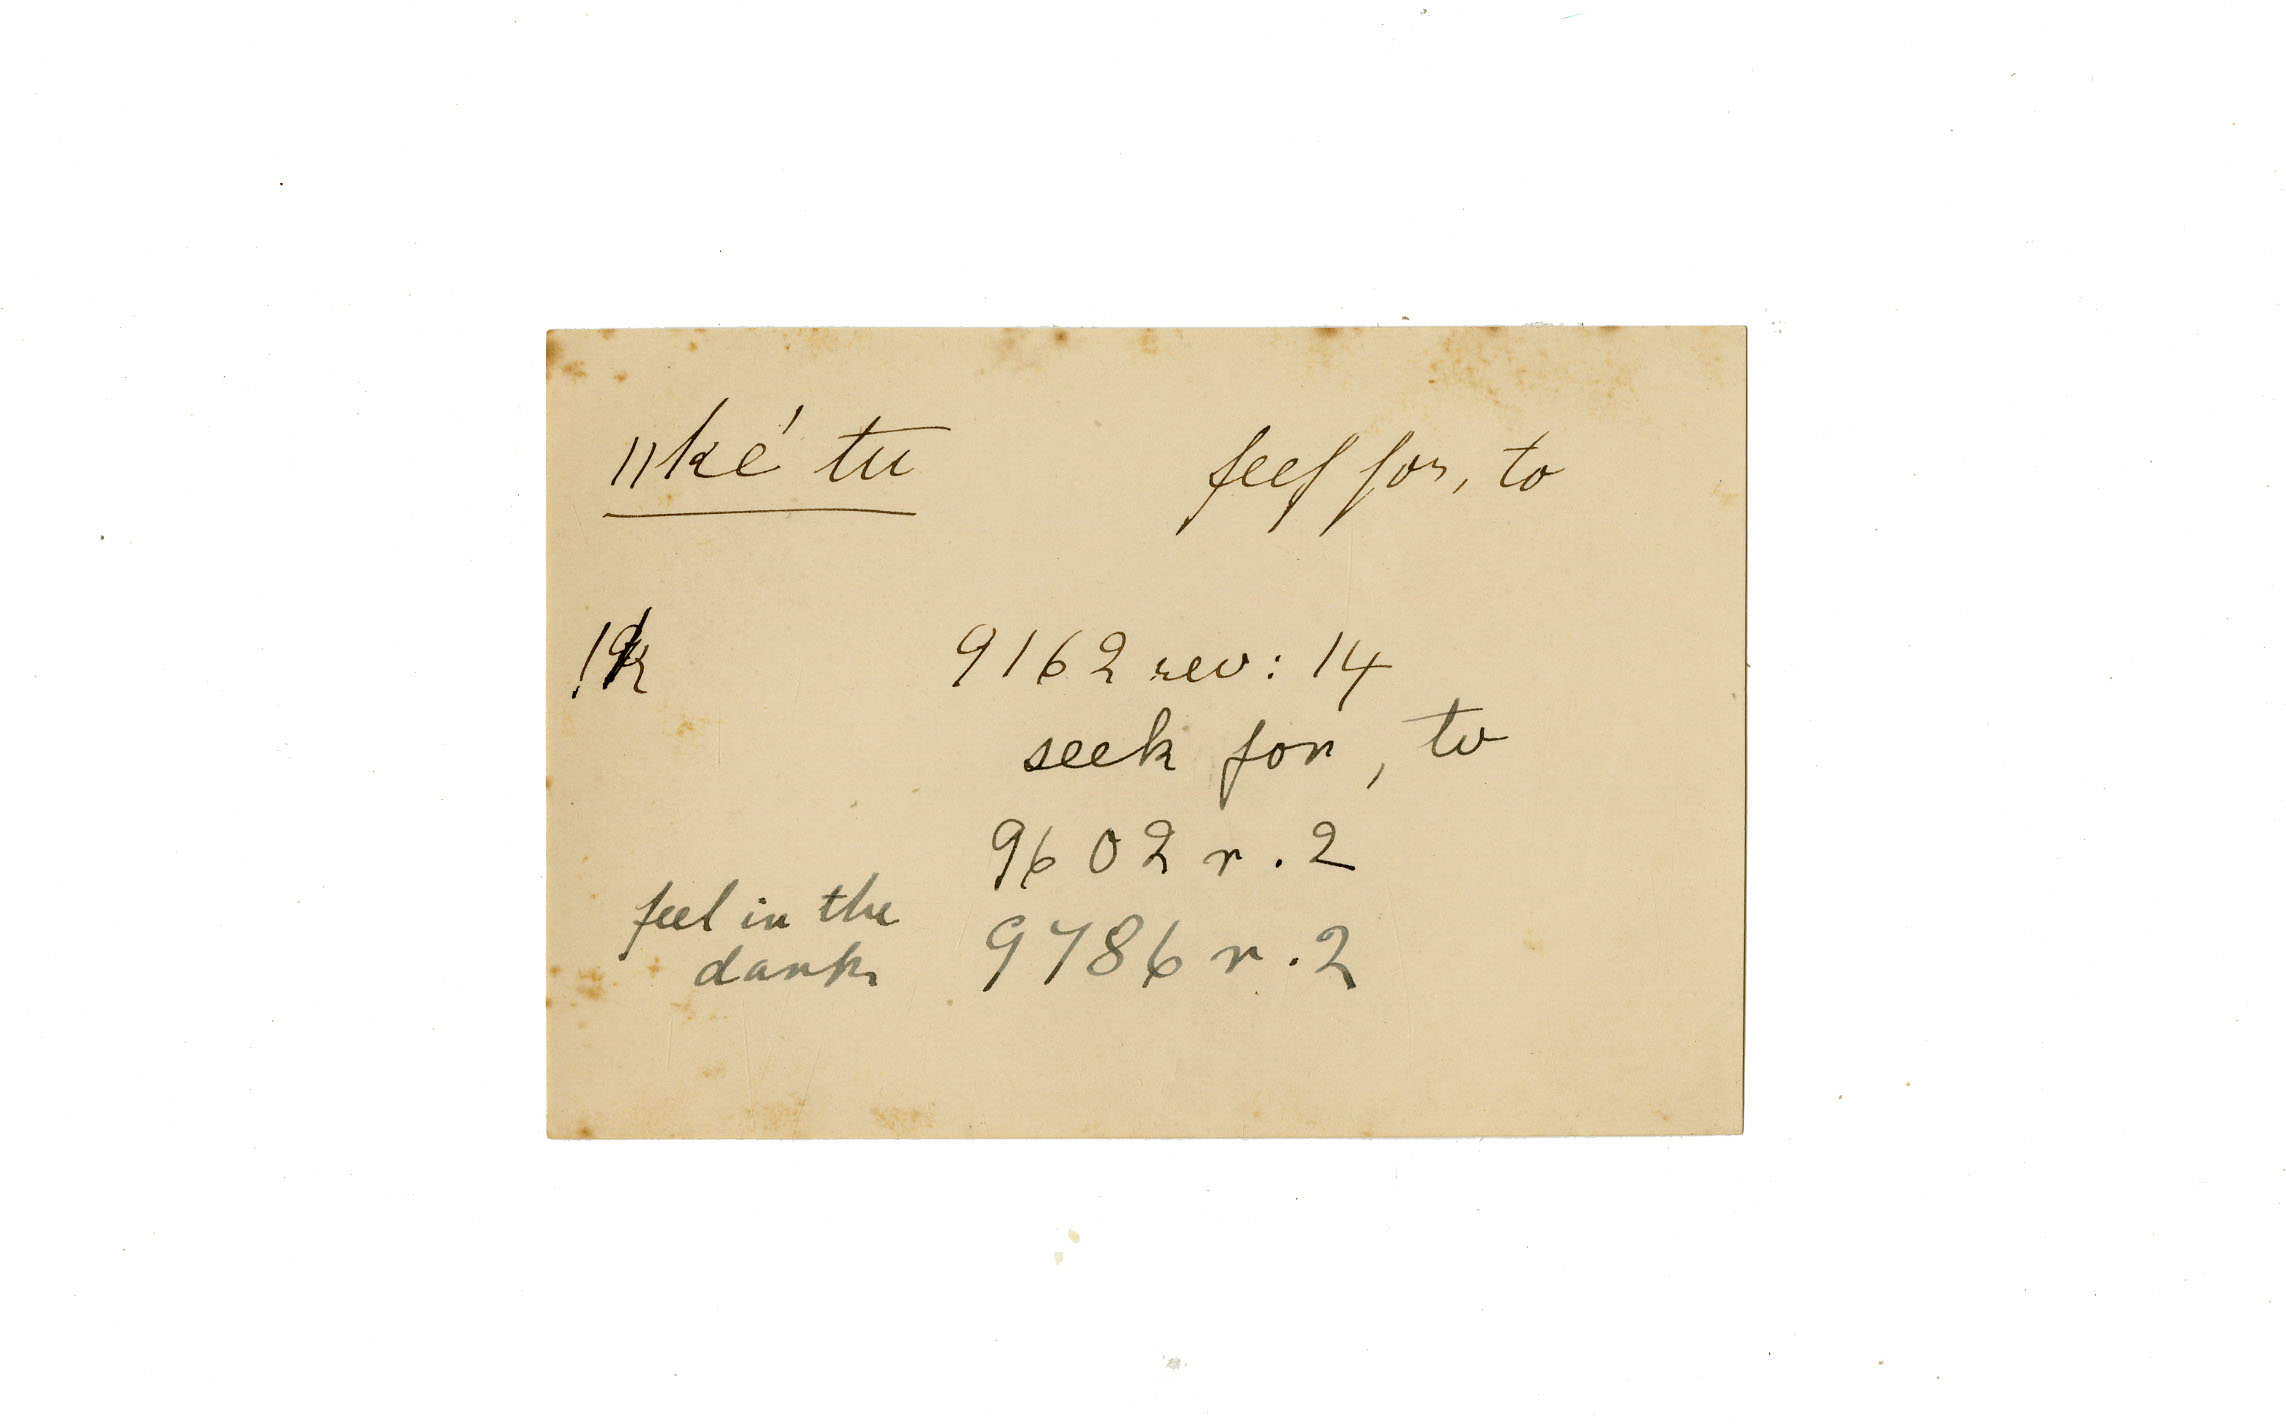 ||ké tu feel for, to
!k 9162 rev: 14
seek for, to
9602 r. 2
feel in the
dark 9786 r. 2